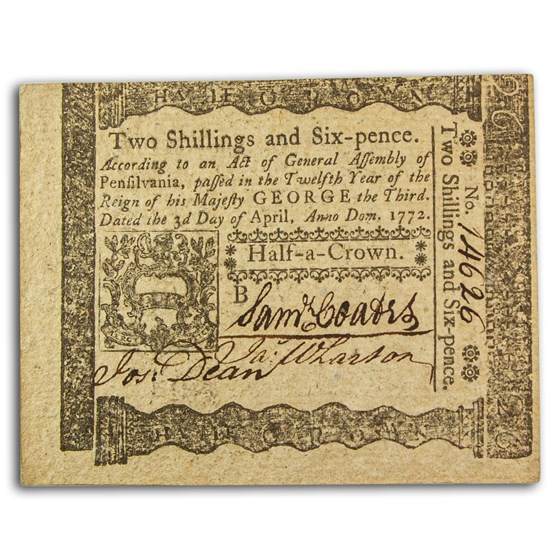 HALF-CROWN
Two Shillings and Six-pence.
According to an Act of General Assembly of
Penſilvania, paſſed in the Twelfth Year of the
Reign of his Majeſty GEORGE the Third.
Dated the 3d Day of April, Anno Dom. 1772.
Half-a-Crown.
B
Saml Coates
Jas. Wharton
Jos. Dean
Two Shillings and Six-pence.
No. 14626
HALF CROWN